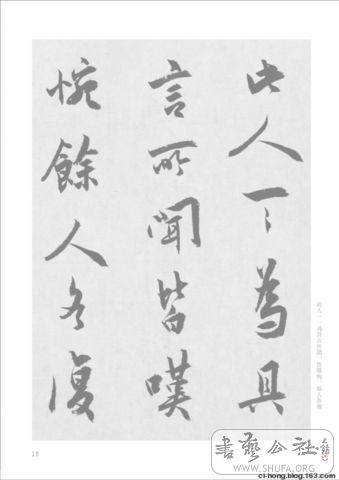 此人一一為具
言所聞皆嘆
惋餘人各復
此人一一為具言所聞，皆嘆惋。餘人各復
18
書藝公社
WWW.SHUFA.ORG
ci-hong.blog.163.com